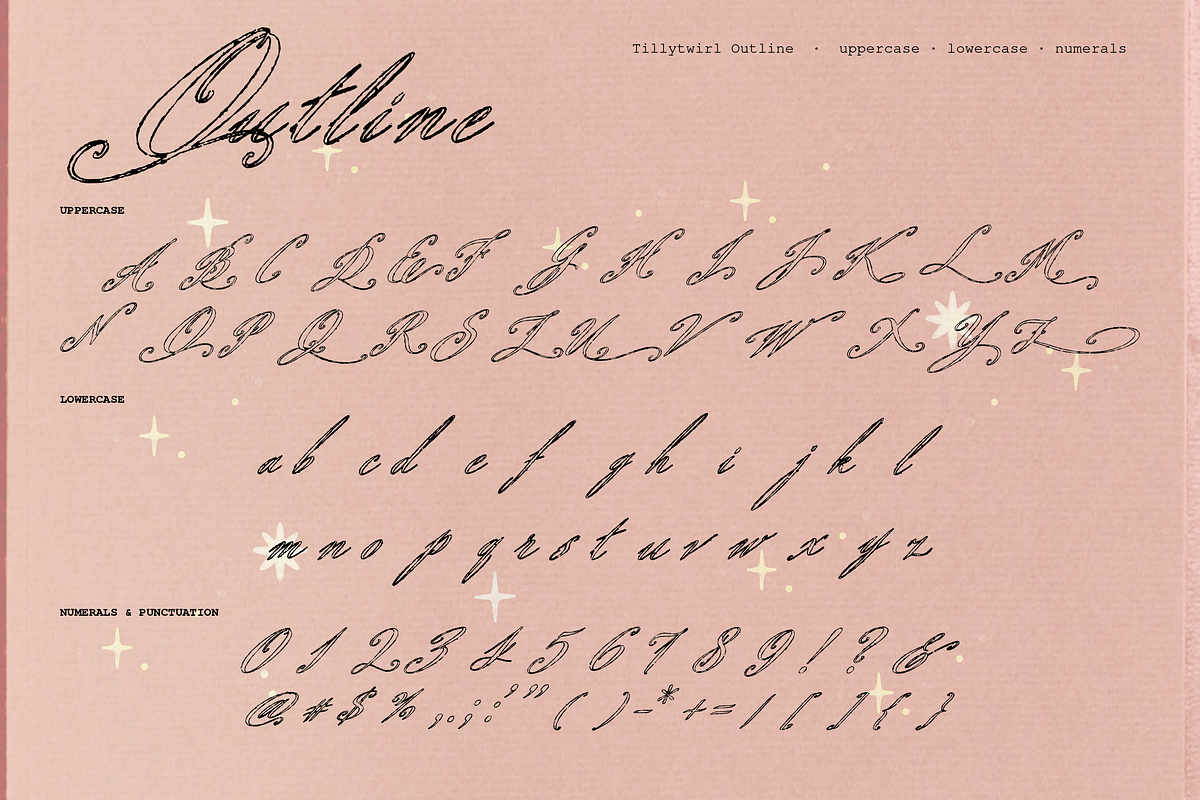 Outline
Tillytwirl Outline · uppercase · lowercase · numerals
UPPERCASE
A B C D E F G H I J K L M
N O P Q R S T U V W X Y Z
LOWERCASE
a b c d e f g h i j k l
m n o p q r s t u v w x y z
NUMERALS & PUNCTUATION
0 1 2 3 4 5 6 7 8 9 ! ? &
@ # $ % , . ; : ' " ( ) - * + = / [ ] { }